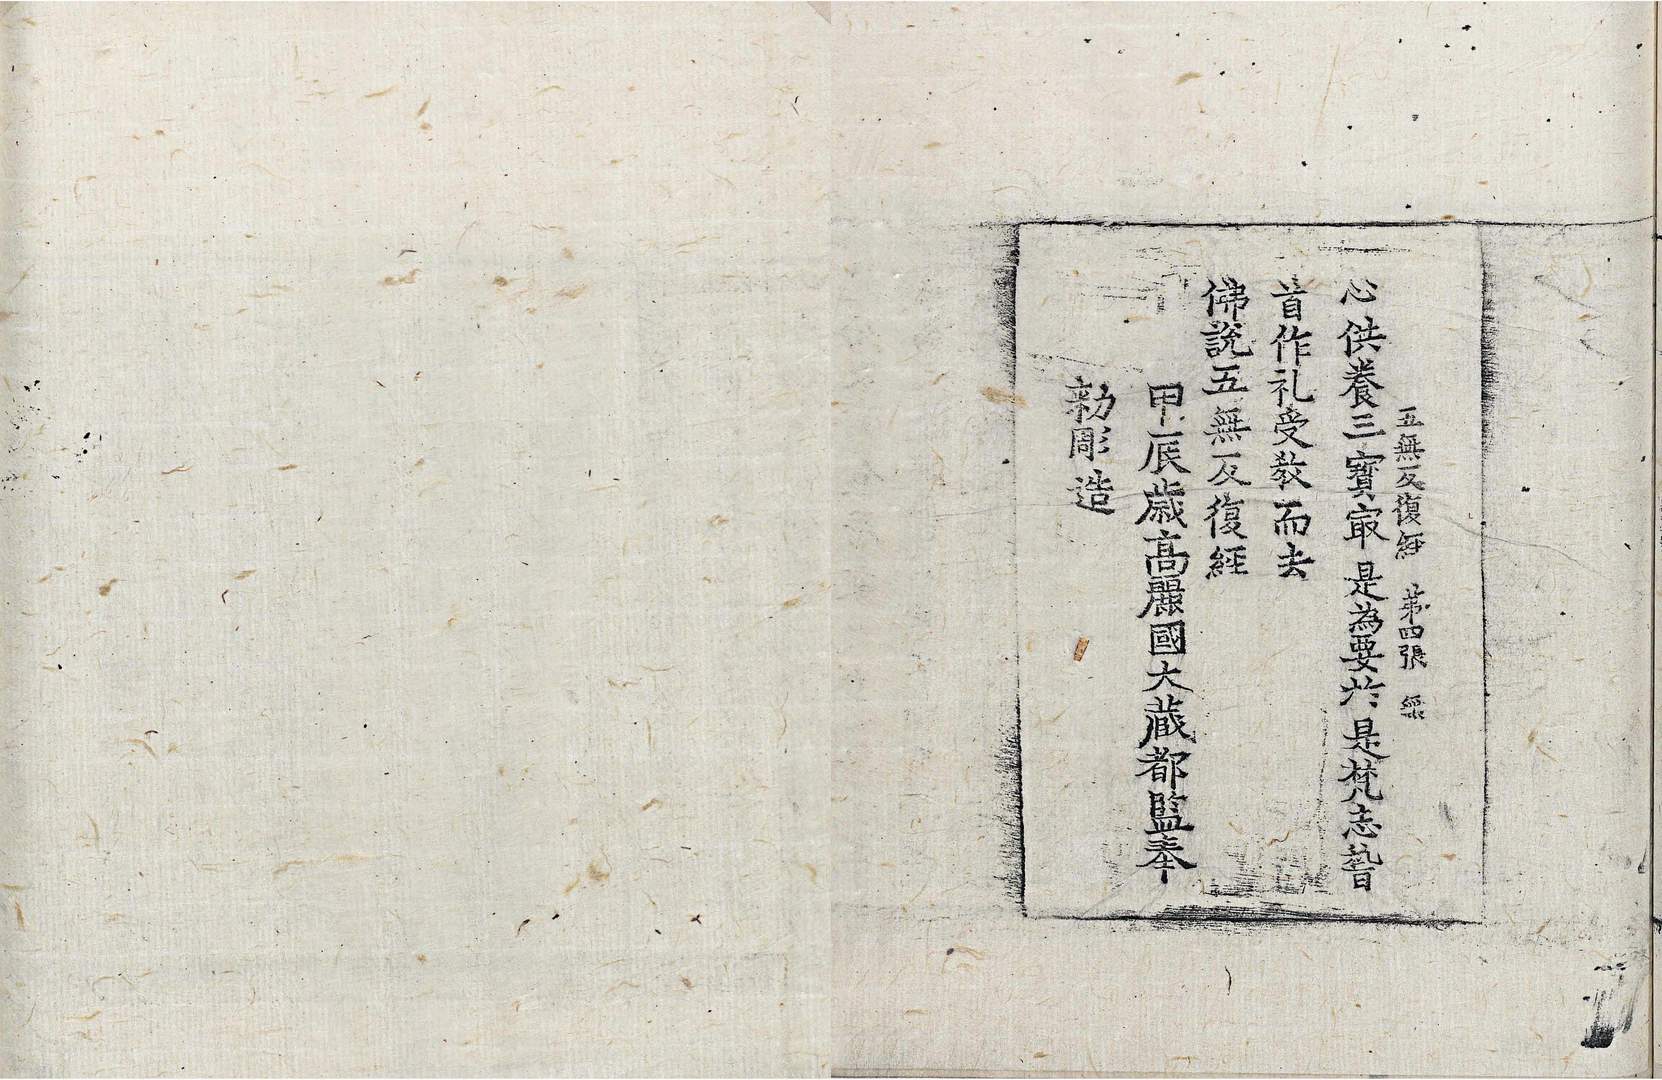 五無反復経 第四張 綵
心供養三寶㝡是為要於是梵志𥡴
首作礼受教而去
佛說五無反復經
甲辰歳高麗國大藏都監奉
勑彫造